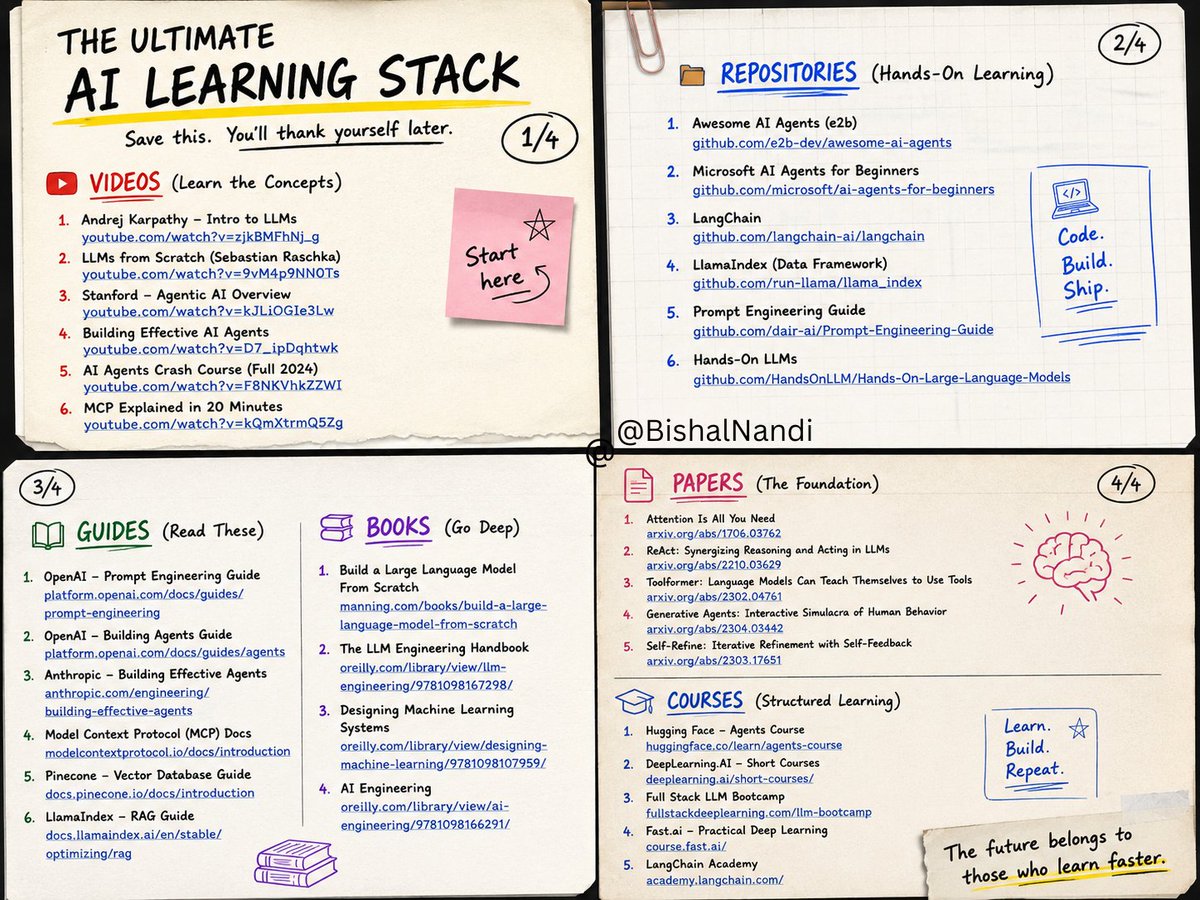 THE ULTIMATE
AI LEARNING STACK
Save this. You'll thank yourself later.
1/4
VIDEOS (Learn the Concepts)
1. Andrej Karpathy – Intro to LLMs
youtube.com/watch?v=zjkBMFhNj_g
2. LLMs from Scratch (Sebastian Raschka)
youtube.com/watch?v=9vM4p9NN0Ts
3. Stanford – Agentic AI Overview
youtube.com/watch?v=kJLiOGIe3Lw
4. Building Effective AI Agents
youtube.com/watch?v=D7_ipDqhtwk
5. AI Agents Crash Course (Full 2024)
youtube.com/watch?v=F8NKVhkZZWI
6. MCP Explained in 20 Minutes
youtube.com/watch?v=kQmXtrmQ5Zg
Start
here
2/4
REPOSITORIES (Hands-On Learning)
1. Awesome AI Agents (e2b)
github.com/e2b-dev/awesome-ai-agents
2. Microsoft AI Agents for Beginners
github.com/microsoft/ai-agents-for-beginners
3. LangChain
github.com/langchain-ai/langchain
4. LlamaIndex (Data Framework)
github.com/run-llama/llama_index
5. Prompt Engineering Guide
github.com/dair-ai/Prompt-Engineering-Guide
6. Hands-On LLMs
github.com/HandsOnLLM/Hands-On-Large-Language-Models
</>
Code.
Build.
Ship.
@ @BishalNandi
3/4
GUIDES (Read These)
1. OpenAI – Prompt Engineering Guide
platform.openai.com/docs/guides/
prompt-engineering
2. OpenAI – Building Agents Guide
platform.openai.com/docs/guides/agents
3. Anthropic – Building Effective Agents
anthropic.com/engineering/
building-effective-agents
4. Model Context Protocol (MCP) Docs
modelcontextprotocol.io/docs/introduction
5. Pinecone – Vector Database Guide
docs.pinecone.io/docs/introduction
6. LlamaIndex – RAG Guide
docs.llamaindex.ai/en/stable/
optimizing/rag
BOOKS (Go Deep)
1. Build a Large Language Model
From Scratch
manning.com/books/build-a-large-
language-model-from-scratch
2. The LLM Engineering Handbook
oreilly.com/library/view/llm-
engineering/9781098167298/
3. Designing Machine Learning
Systems
oreilly.com/library/view/designing-
machine-learning/9781098107959/
4. AI Engineering
oreilly.com/library/view/ai-
engineering/9781098166291/
PAPERS (The Foundation)
4/4
1. Attention Is All You Need
arxiv.org/abs/1706.03762
2. ReAct: Synergizing Reasoning and Acting in LLMs
arxiv.org/abs/2210.03629
3. Toolformer: Language Models Can Teach Themselves to Use Tools
arxiv.org/abs/2302.04761
4. Generative Agents: Interactive Simulacra of Human Behavior
arxiv.org/abs/2304.03442
5. Self-Refine: Iterative Refinement with Self-Feedback
arxiv.org/abs/2303.17651
COURSES (Structured Learning)
1. Hugging Face – Agents Course
huggingface.co/learn/agents-course
2. DeepLearning.AI – Short Courses
deeplearning.ai/short-courses/
3. Full Stack LLM Bootcamp
fullstackdeeplearning.com/llm-bootcamp
4. Fast.ai – Practical Deep Learning
course.fast.ai/
5. LangChain Academy
academy.langchain.com/
Learn.
Build.
Repeat.
The future belongs to
those who learn faster.